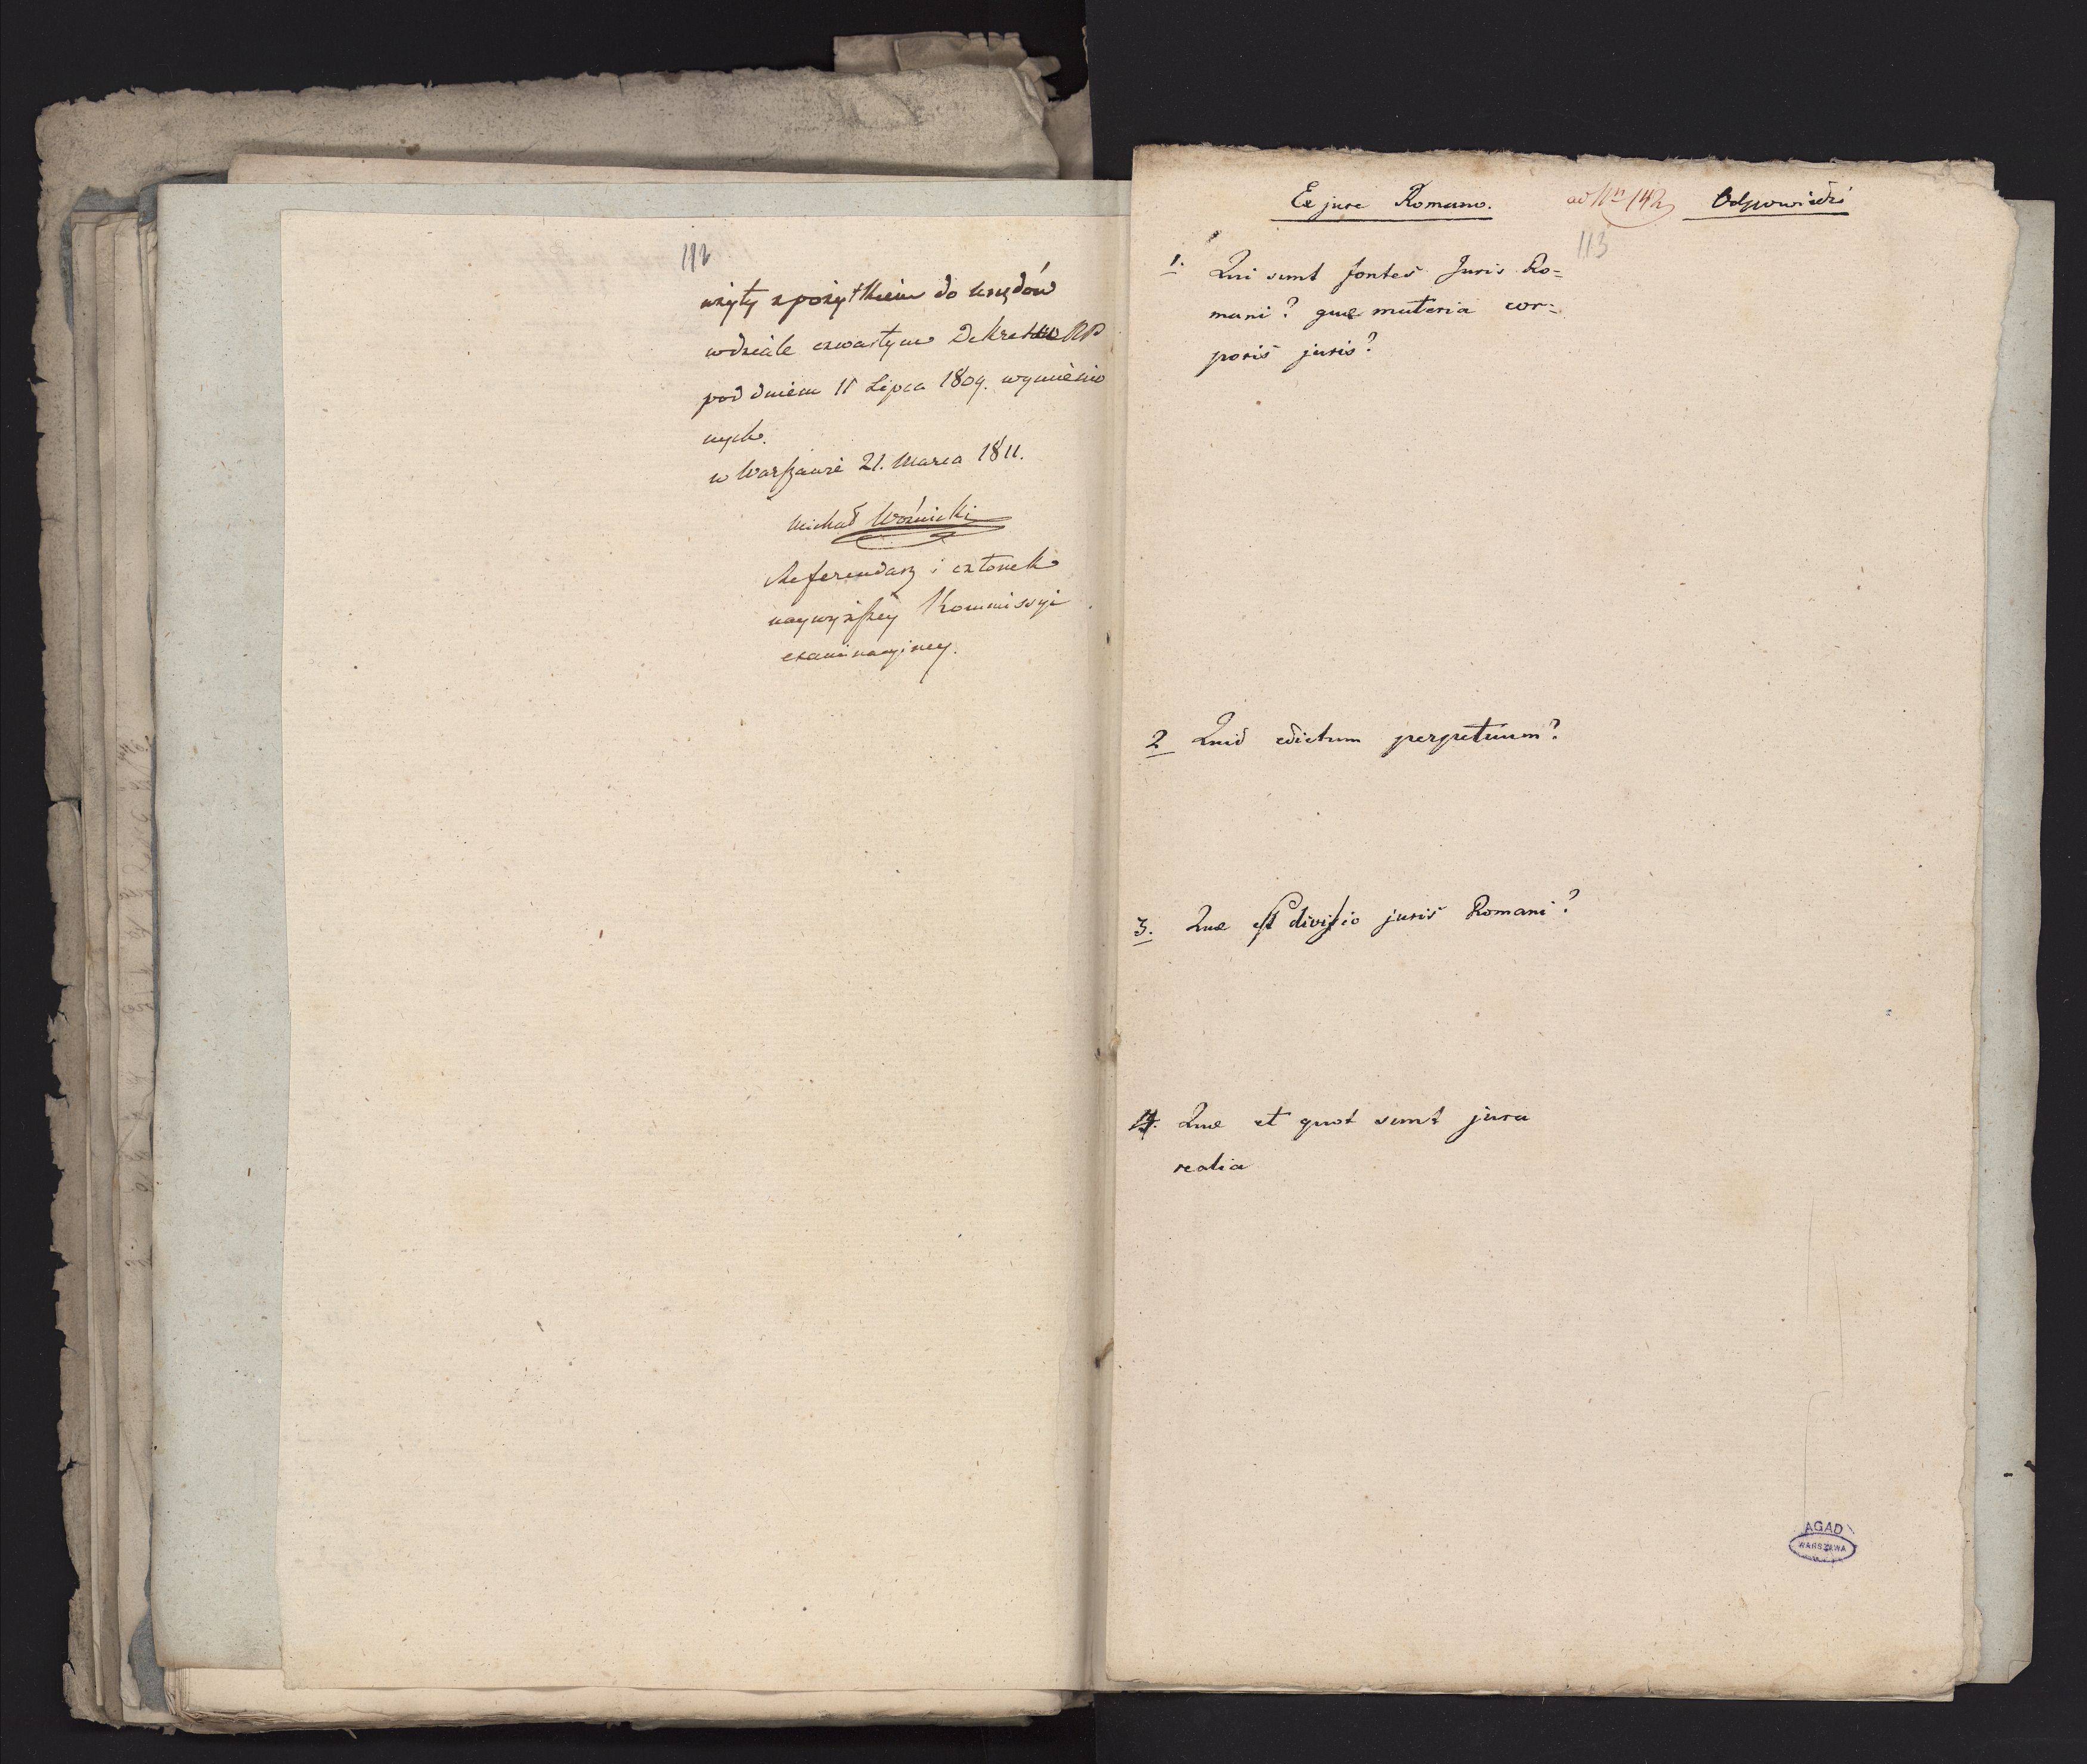 112
użyty z pożytkiem do urzędów
w dziale czwartym Dekretu
pod dniem 11 Lipca 1809. wymienio
nych.
w Warszawie 21. Marca 1811.
Michał Woźnicki
Referendarz i członek
naywyższey Kommissyi
examinacyiney.
Ex jure Romano. ad Nrm 142 Odpowiedzi
113
1. Qui sunt fontes Juris Ro=
mani? quæ materia cor=
poris juris?
2 Quid edictum perpetuum?
3. Quæ est divisio juris Romani?
4. Quæ et quot sunt jura
realia
AGAD
WARSZAWA